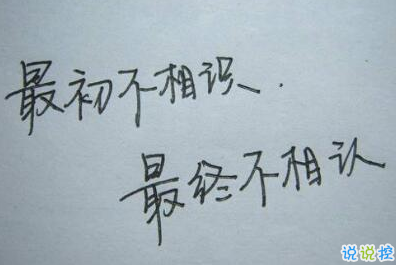 最初不相识.
最终不相认
说说控